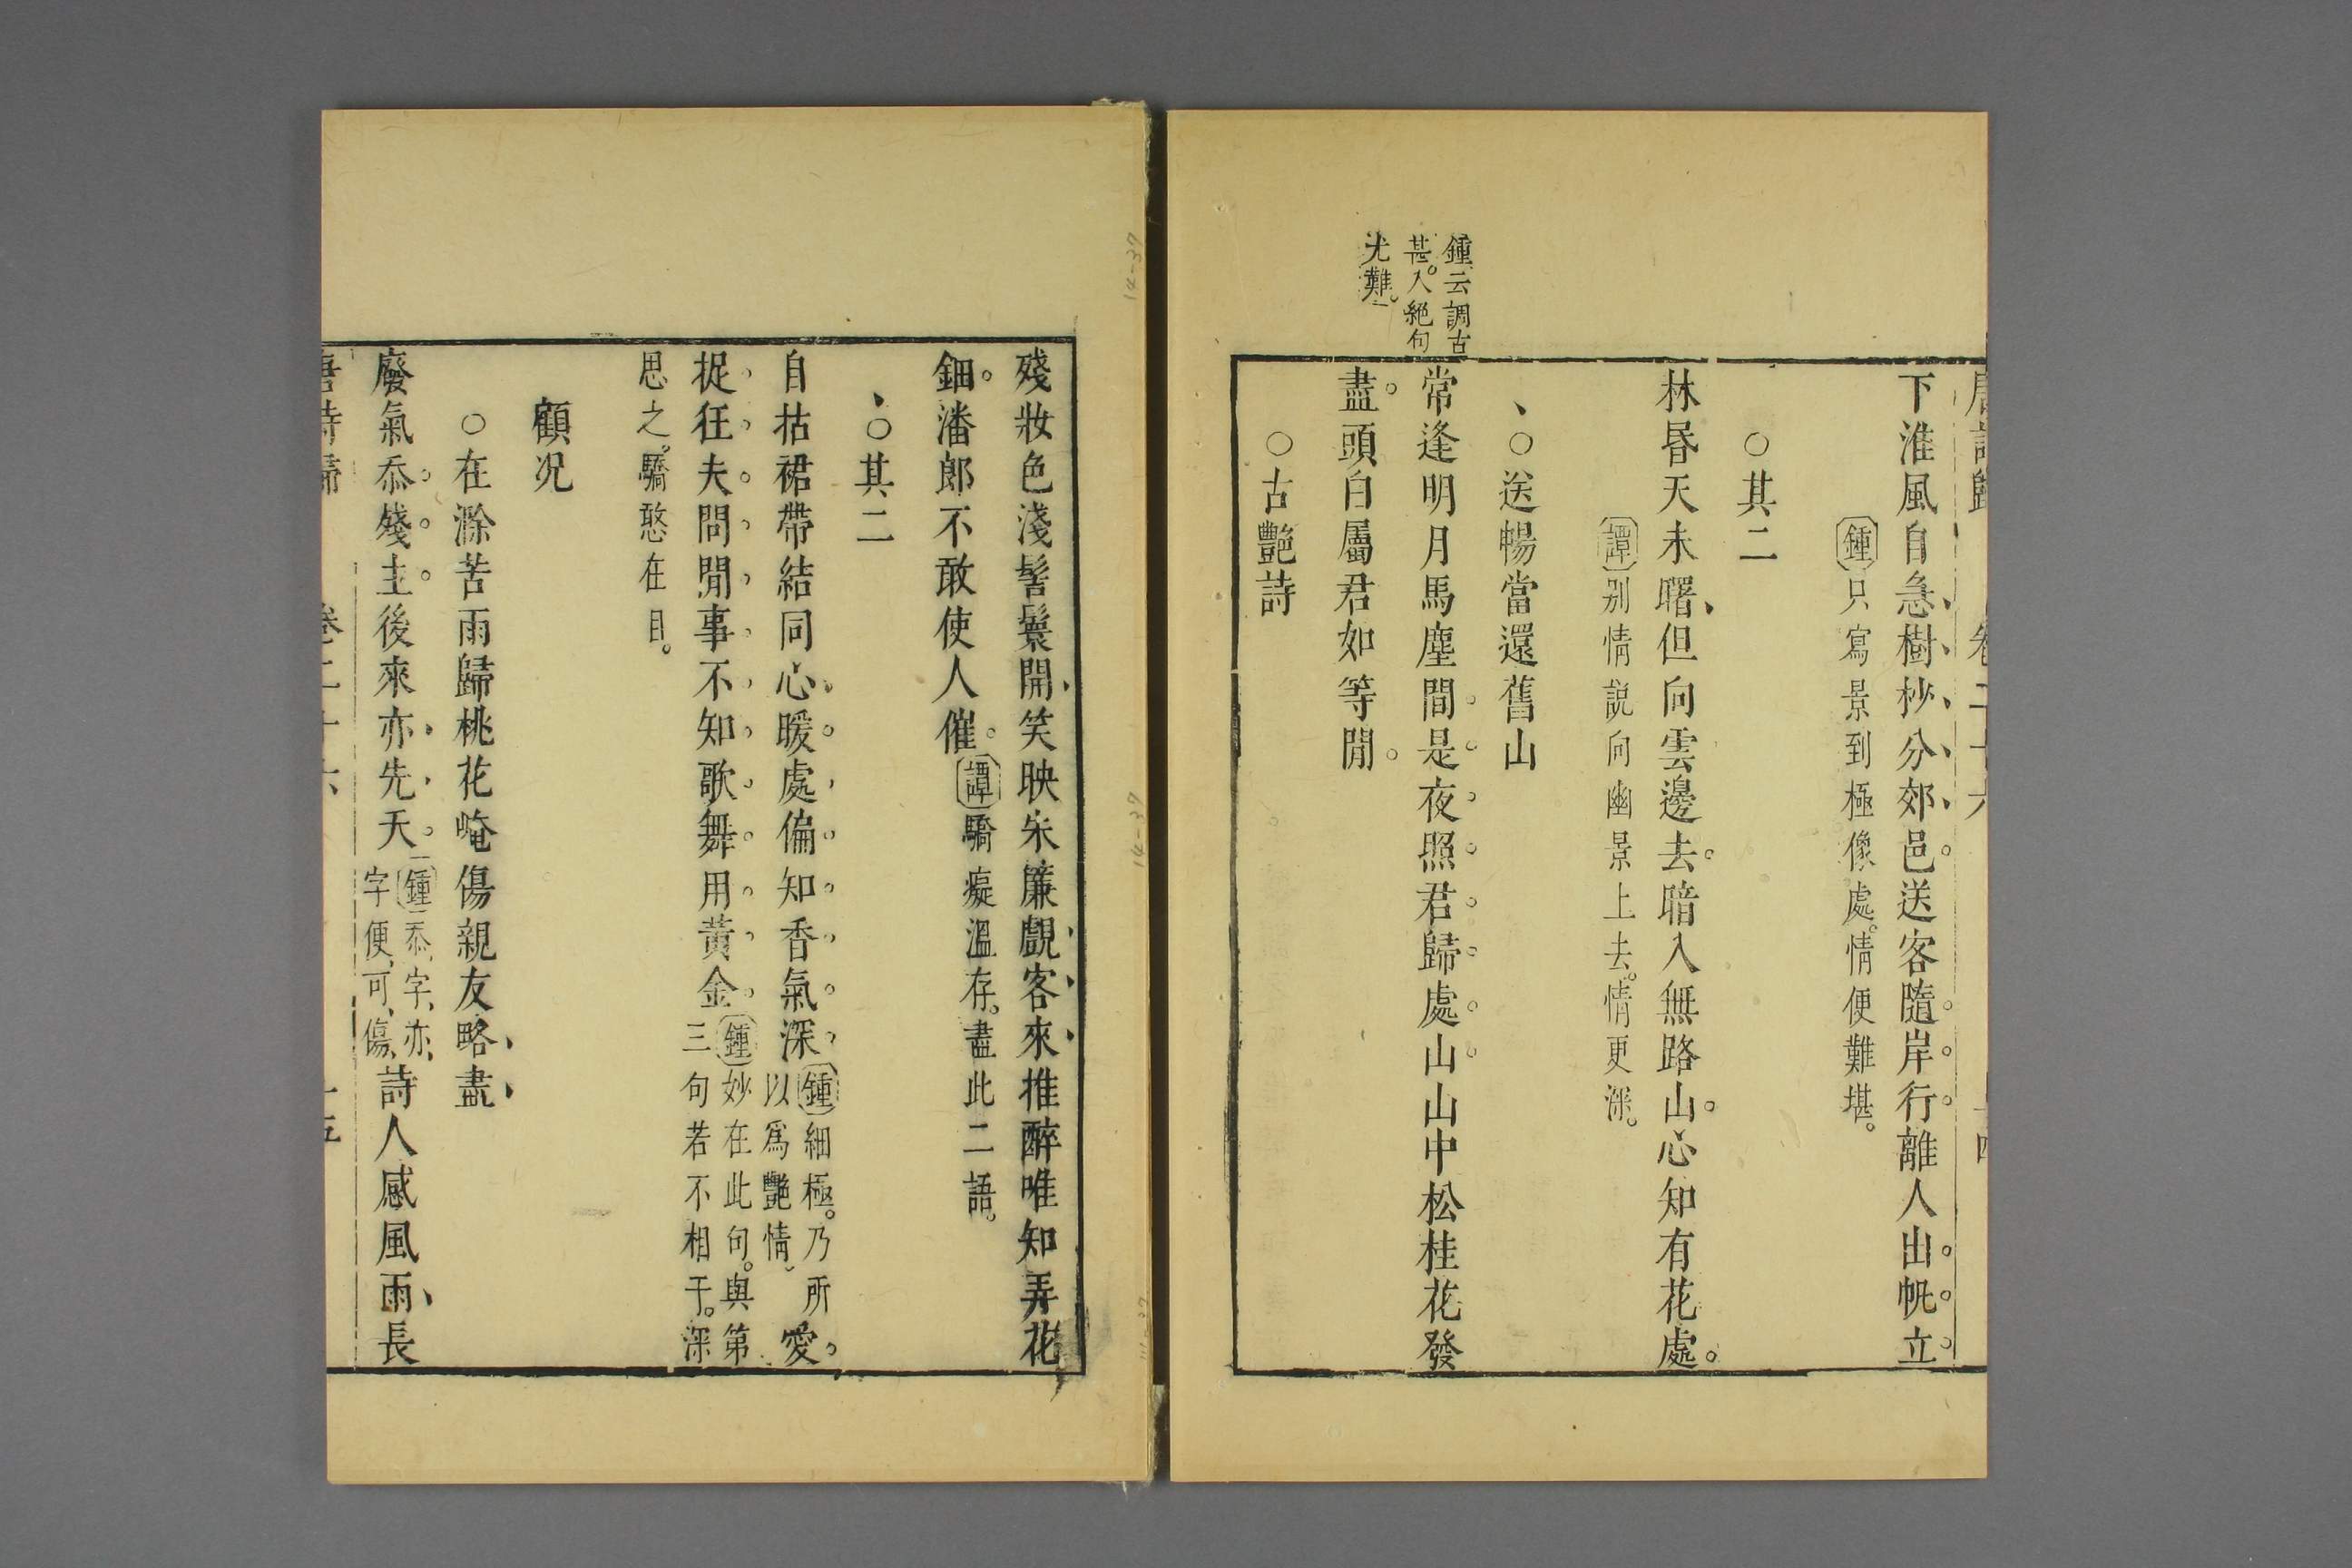 唐詩歸 卷二十六 十四
下淮風自急樹杪分郊邑送客隨岸行離人出帆立
鍾只寫景到極像處情便難堪
○其二
林昏天未曙但向雲邊去暗入無路山心知有花處
譚別情說向幽景上去情更深
○送暢當還舊山
常逢明月馬塵間是夜照君歸處山山中松桂花發
盡頭白屬君如等閒
○古艷詩
鍾云調古
甚入絕句
尤難
殘妝色淺髻鬟開笑映朱簾覷客來推醉唯知弄花
鈿潘郎不敢使人催譚驕癡溫存盡此二語
○其二
自拈裙帶結同心暖處偏知香氣深鍾細極乃所以爲艷情愛
捉狂夫問閒事不知歌舞用黃金鍾妙在此句與第三句若不相干深
思之驕憨在目
顧况
○在滁苦雨歸桃花崦傷親友略盡
廢氣忝殘主後來亦先天鍾忝字亦字便可傷詩人感風雨長
唐詩歸 卷二十六 十五
14-37
14-37